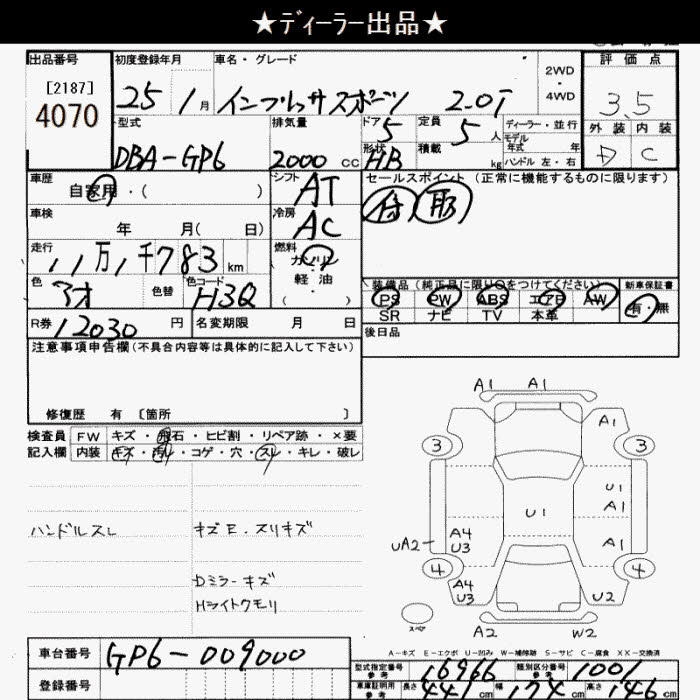 ★ディーラー出品★
出品番号 初度登録年月 車名・グレード 評価点
[2187]
4070
25 1月 インプレッサスポーツ 2.0i 2WD 4WD 3.5
型式 排気量 ドア 5 定員 5人 ディーラー・並行 外装 内装
DBA-GP6 2000cc 形状 HB 積載 kg モデル年式 年 D C
ハンドル 左・右
車歴 自家用・( ) シフト AT セールスポイント (正常に機能するものに限ります)
車検 年 月( 日) 冷房 AC
走行 11万1千783km 燃料 ガソリン
軽油
( )
色 アオ 色替 色コード H3Q
装備品 (純正品に限り○をつけてください) 新車保証書
PS PW ABS エアB AW 有・無
SR ナビ TV 本革
R券 12030円 名変期限 月 日 後日品
注意事項申告欄(不具合内容等は具体的に記入して下さい)
修復歴 有 〔箇所 〕
検査員 FW キズ・飛石・ヒビ割・リペア跡・×要
記入欄 内装 キズ・汚れ・コゲ・穴・スレ・キレ・破レ
ハンドルスレ キズE.スリキズ
Dミラーキズ
Hライトクモリ
A1 A1
A1
3 3
U1
A1
U1
UA2 A4 U3 A1
4 4
A4 U3 U2
スペア
A2 W2
A-キズ E-エクボ U-凹み W-補修跡 S-サビ C-腐食 XX-交換済
車台番号 GP6-009000
型式指定番号 参考 16966 類別区分番号 参考 1001
登録番号
車庫証明用 参考 長さ 441cm 幅 174cm 高さ 146cm